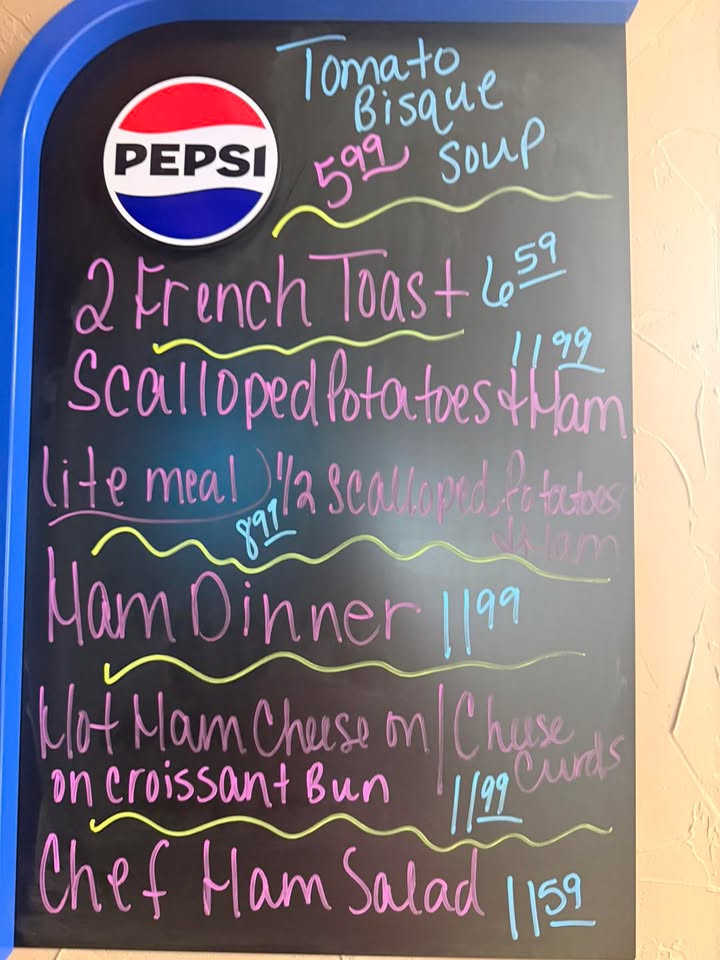 PEPSI
Tomato
Bisque
5.99 Soup
2 French Toast 6.59
11.99
Scalloped Potatoes & Ham
lite meal 1/2 Scalloped Potatoes
8.99 & Ham
Ham Dinner 11.99
Hot Ham Cheese on / Cheese
on Croissant Bun 11.99 Curds
Chef Ham Salad 11.59